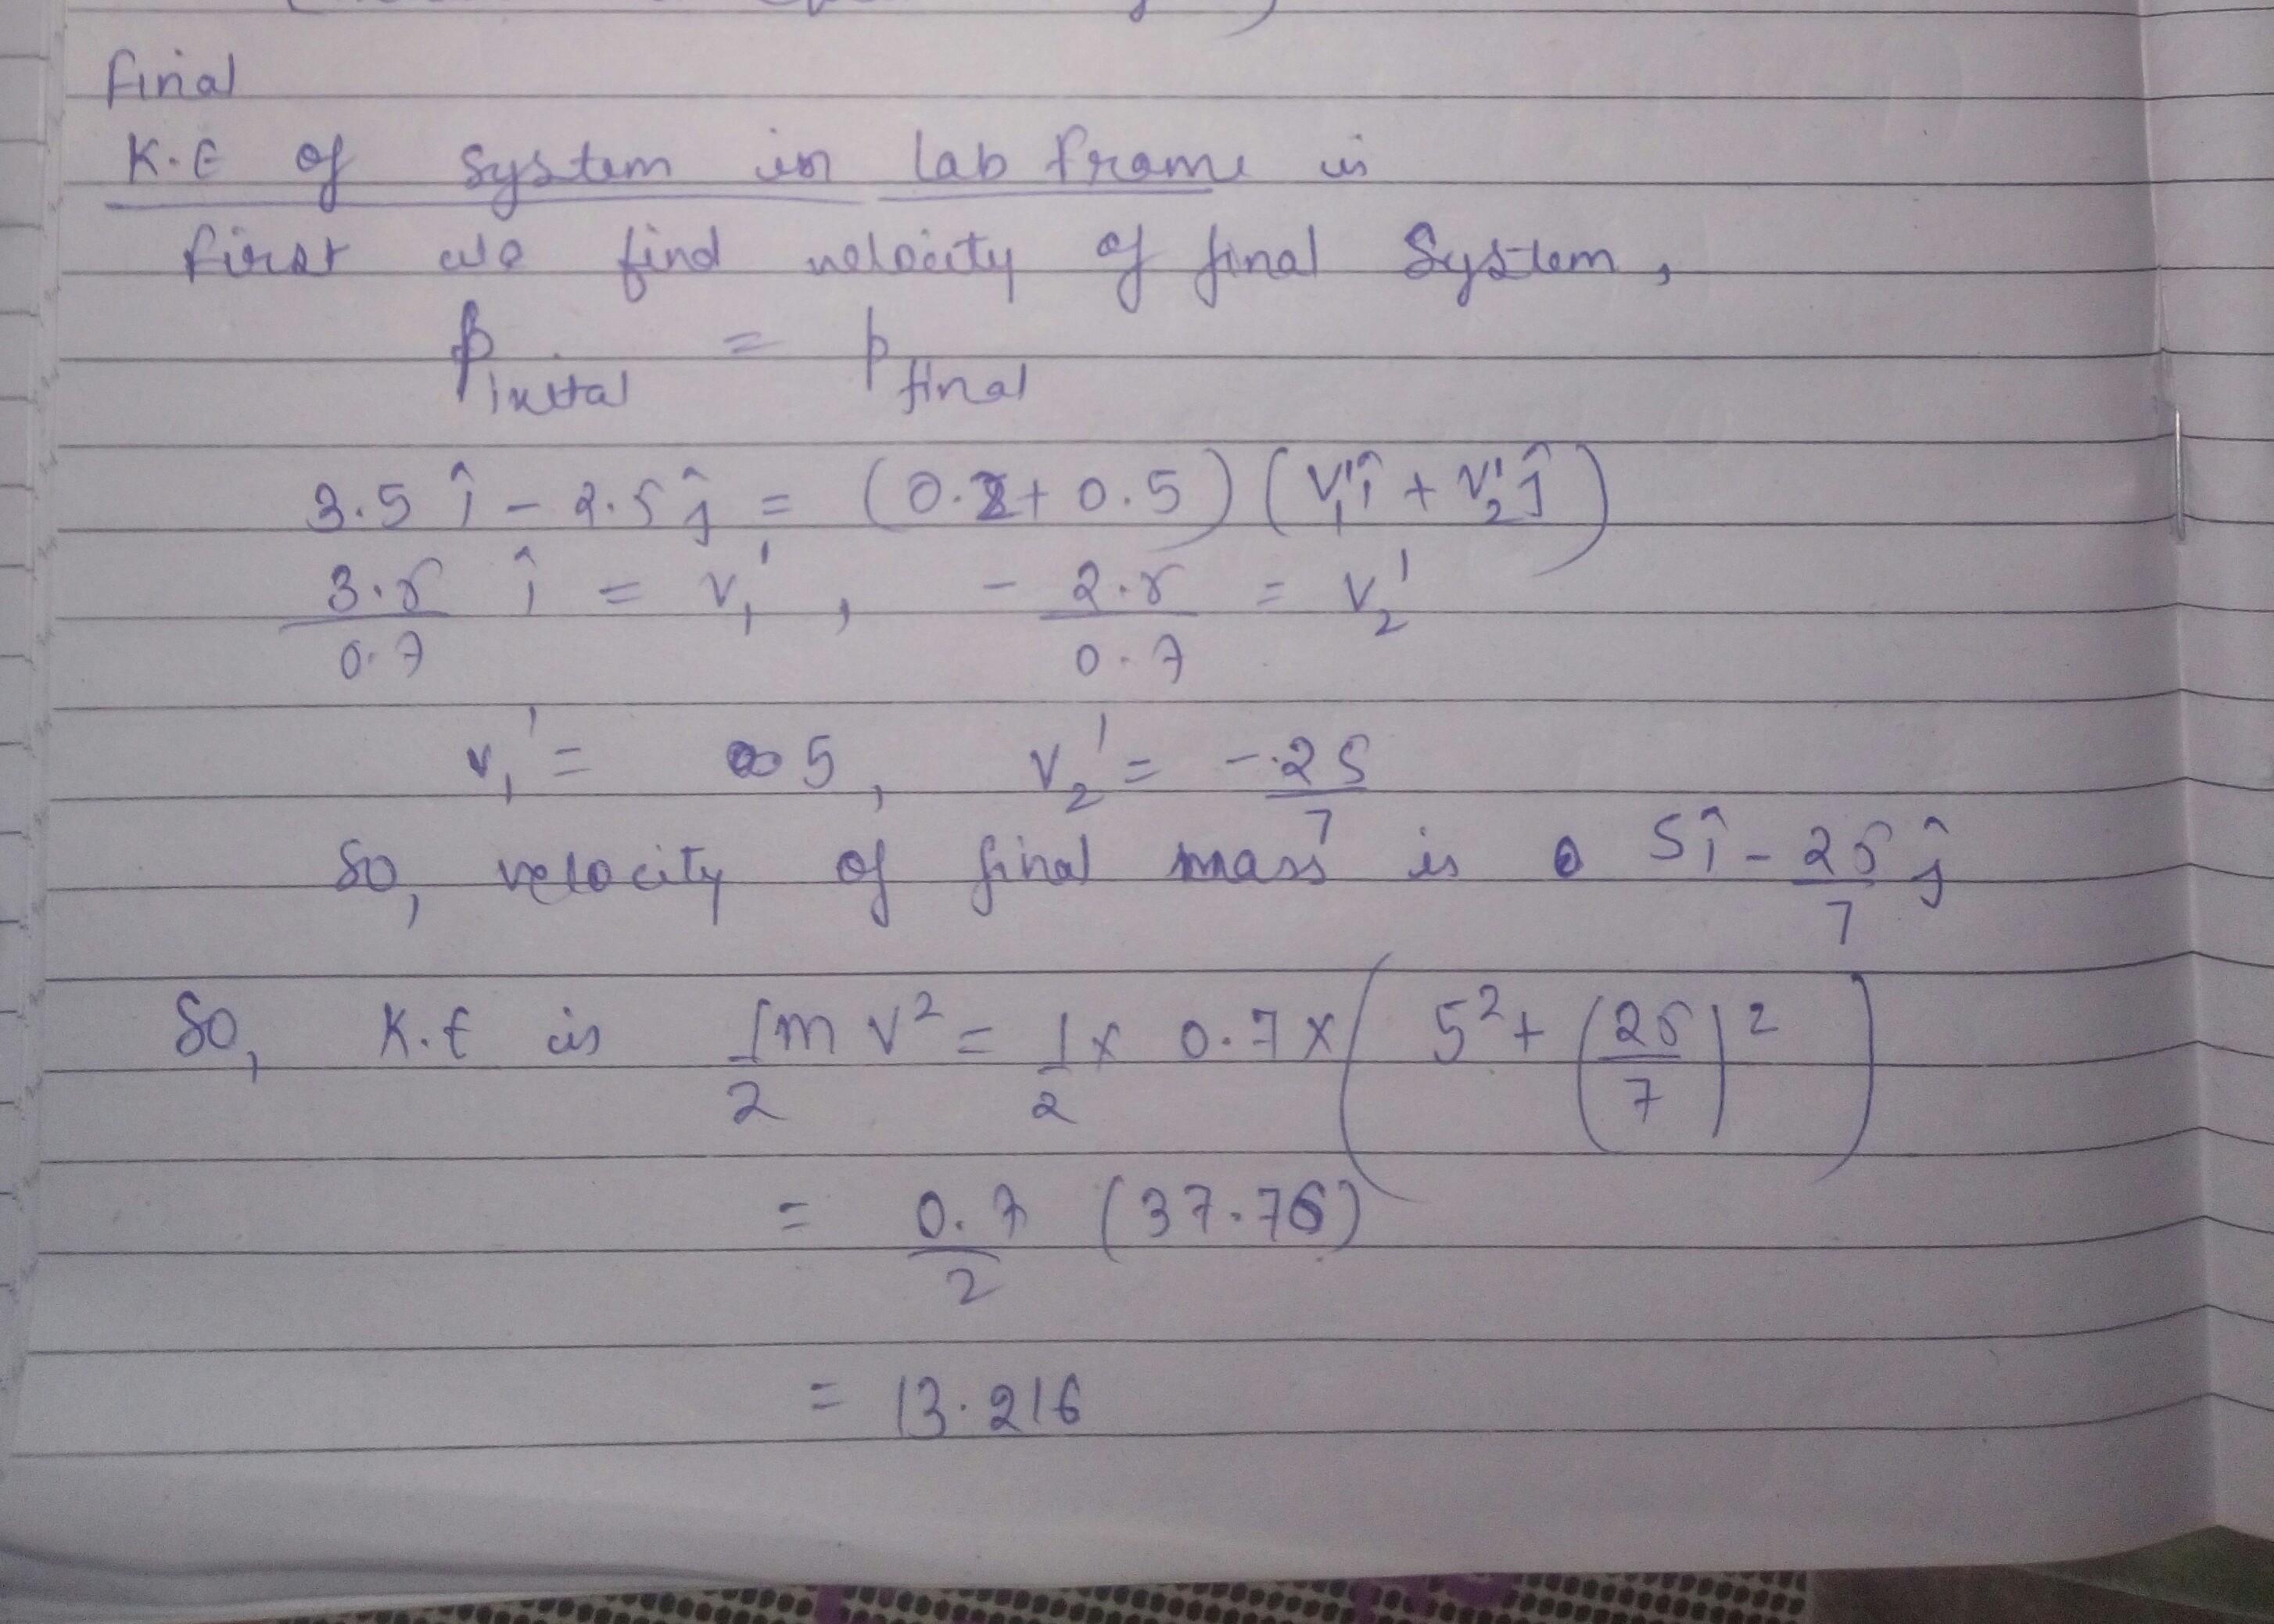 final
K.E of system in lab frame is
first we find velocity of final system,
p initial = p final
3.5 î - 2.5 ĵ = (0.2 + 0.5) (v₁'î + v₂'ĵ)
3.5/0.7 î = v₁', - 2.5/0.7 = v₂'
v₁' = 5, v₂' = -25/7
So, velocity of final mass is 5î - 25/7 ĵ
So, K.E is 1/2 m v² = 1/2 x 0.7 x (5² + (25/7)²)
= 0.7/2 (37.76)
= 13.216